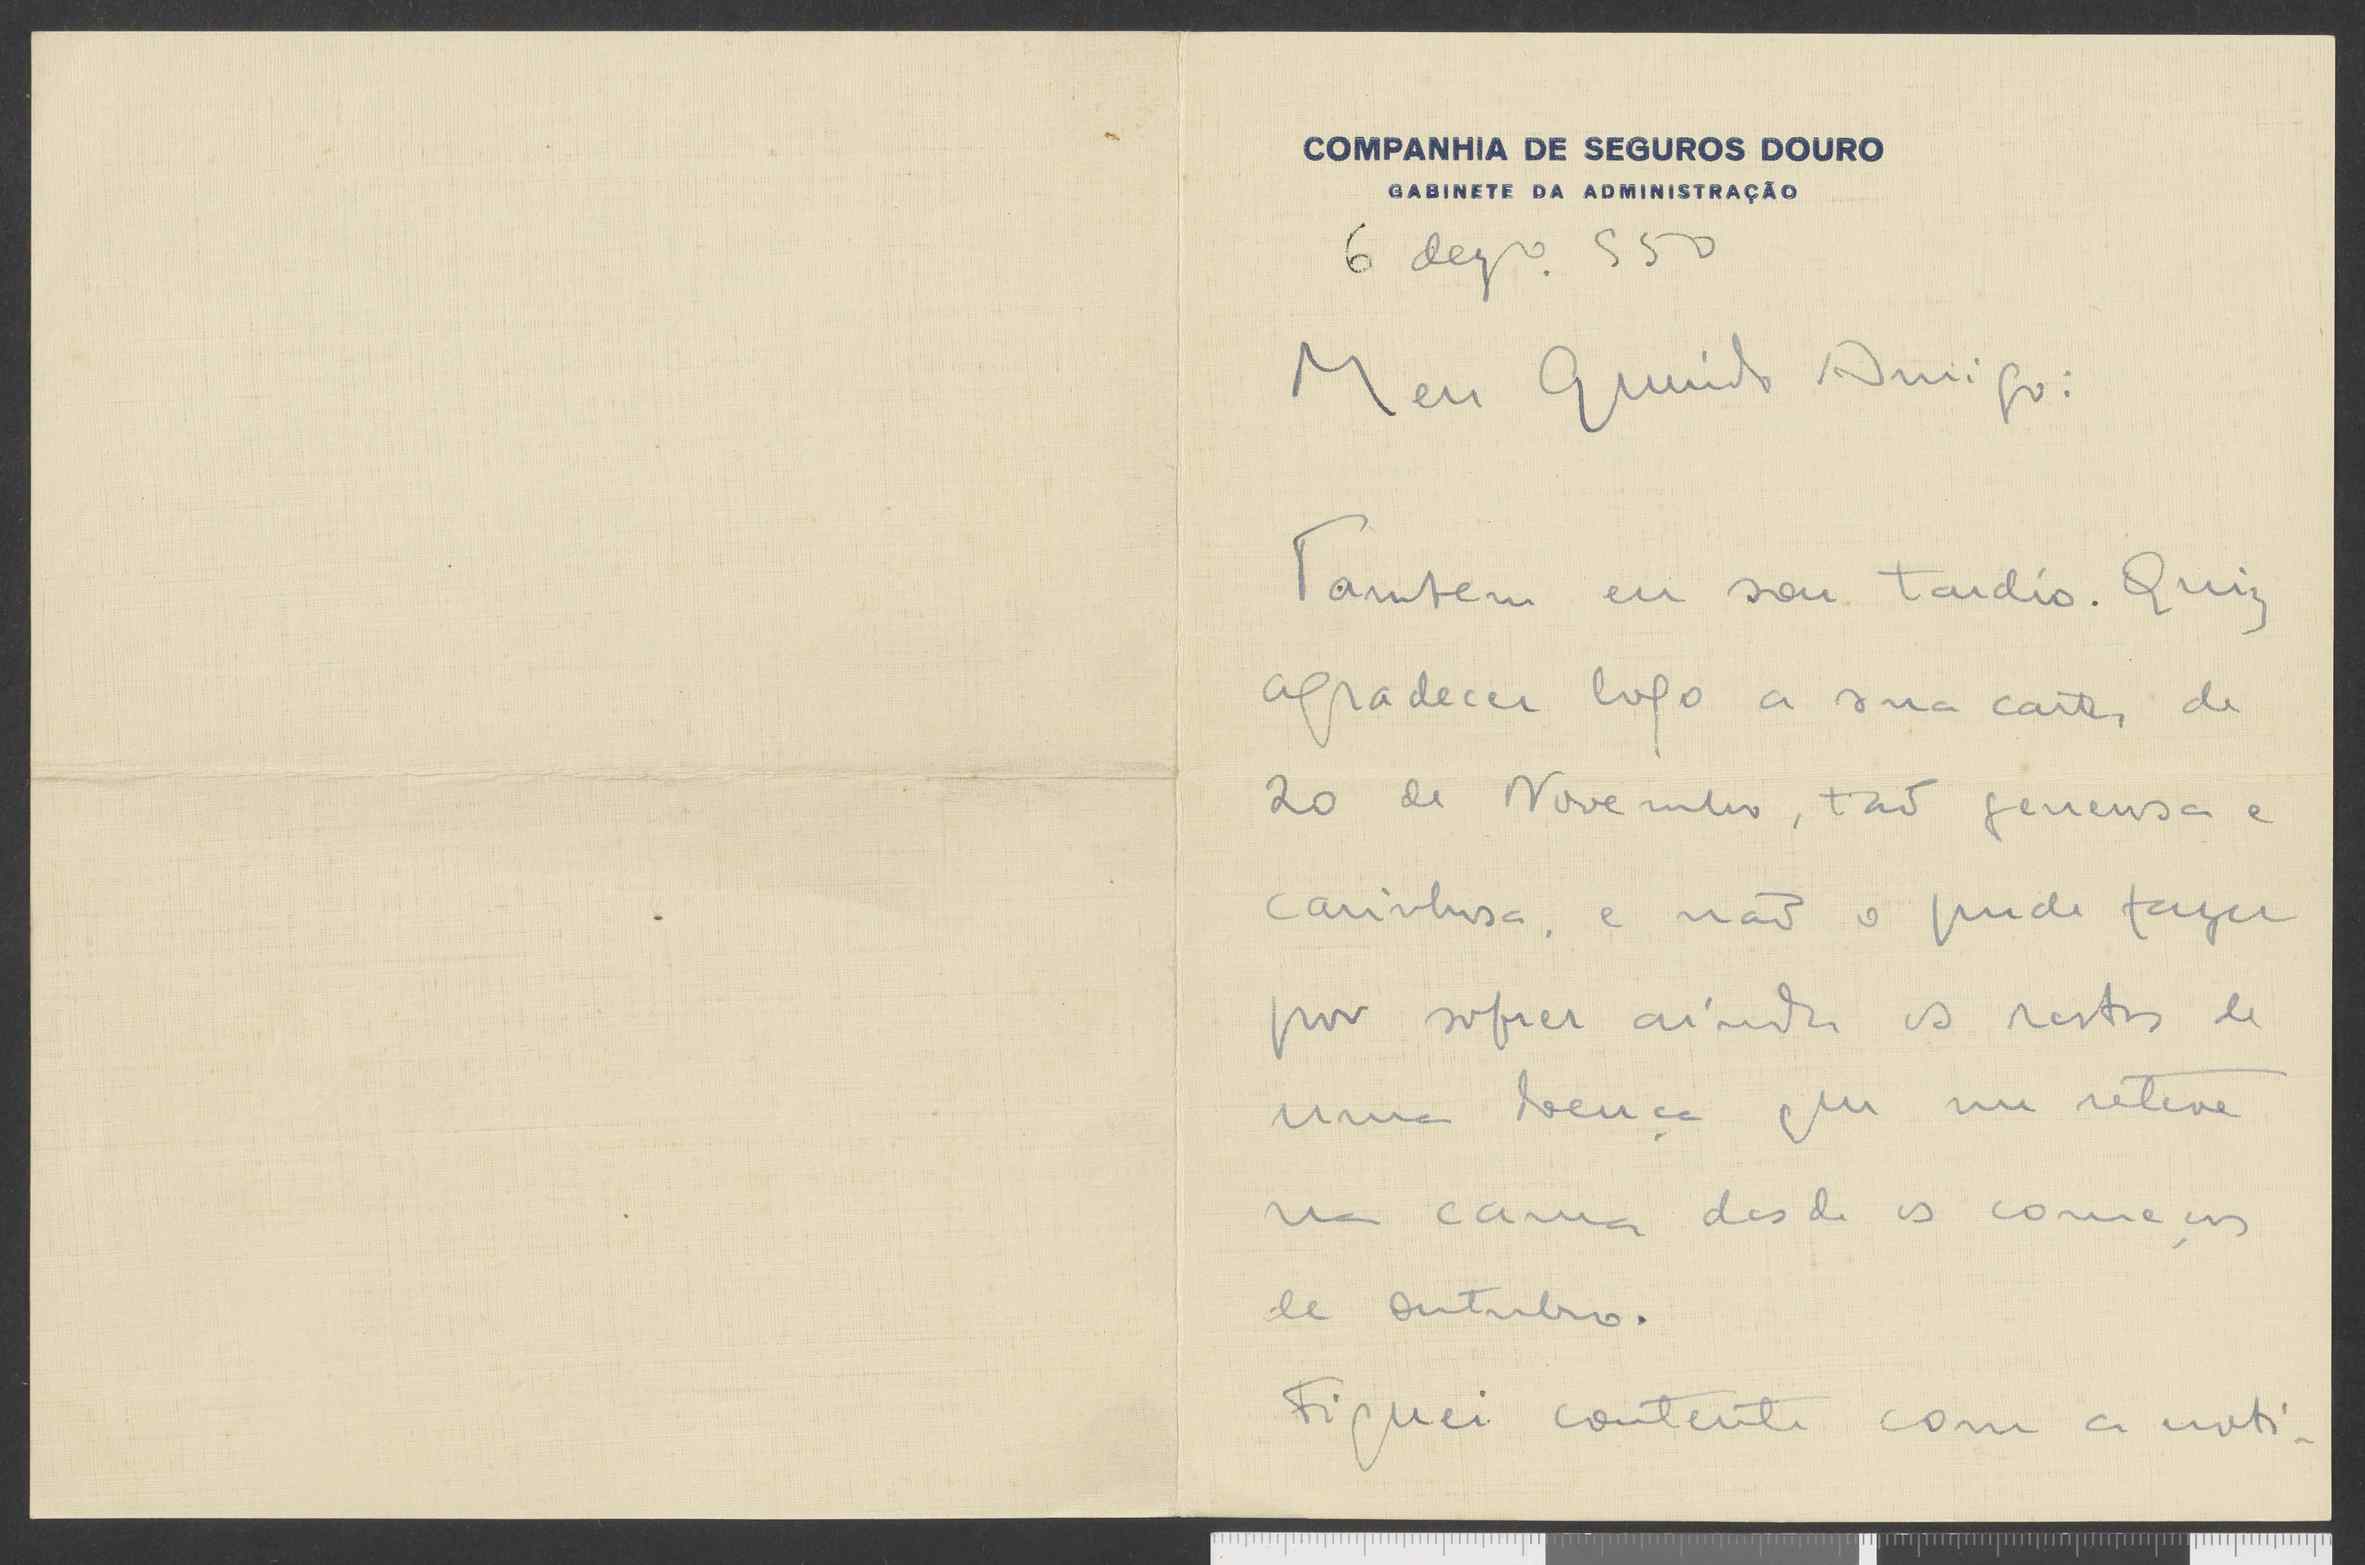 COMPANHIA DE SEGUROS DOURO
GABINETE DA ADMINISTRAÇÃO
6 dezo. 550
Meu Querido Amigo:
Tambem eu sou tardio. Quiz
agradecer logo a sua carta de
20 de Novembro, tão generosa e
carinhosa, e não o pude fazer
por sofrer ainda os restos de
uma doença que me reteve
na cama desde os começos
de outubro.
Fiquei contente com a noti-